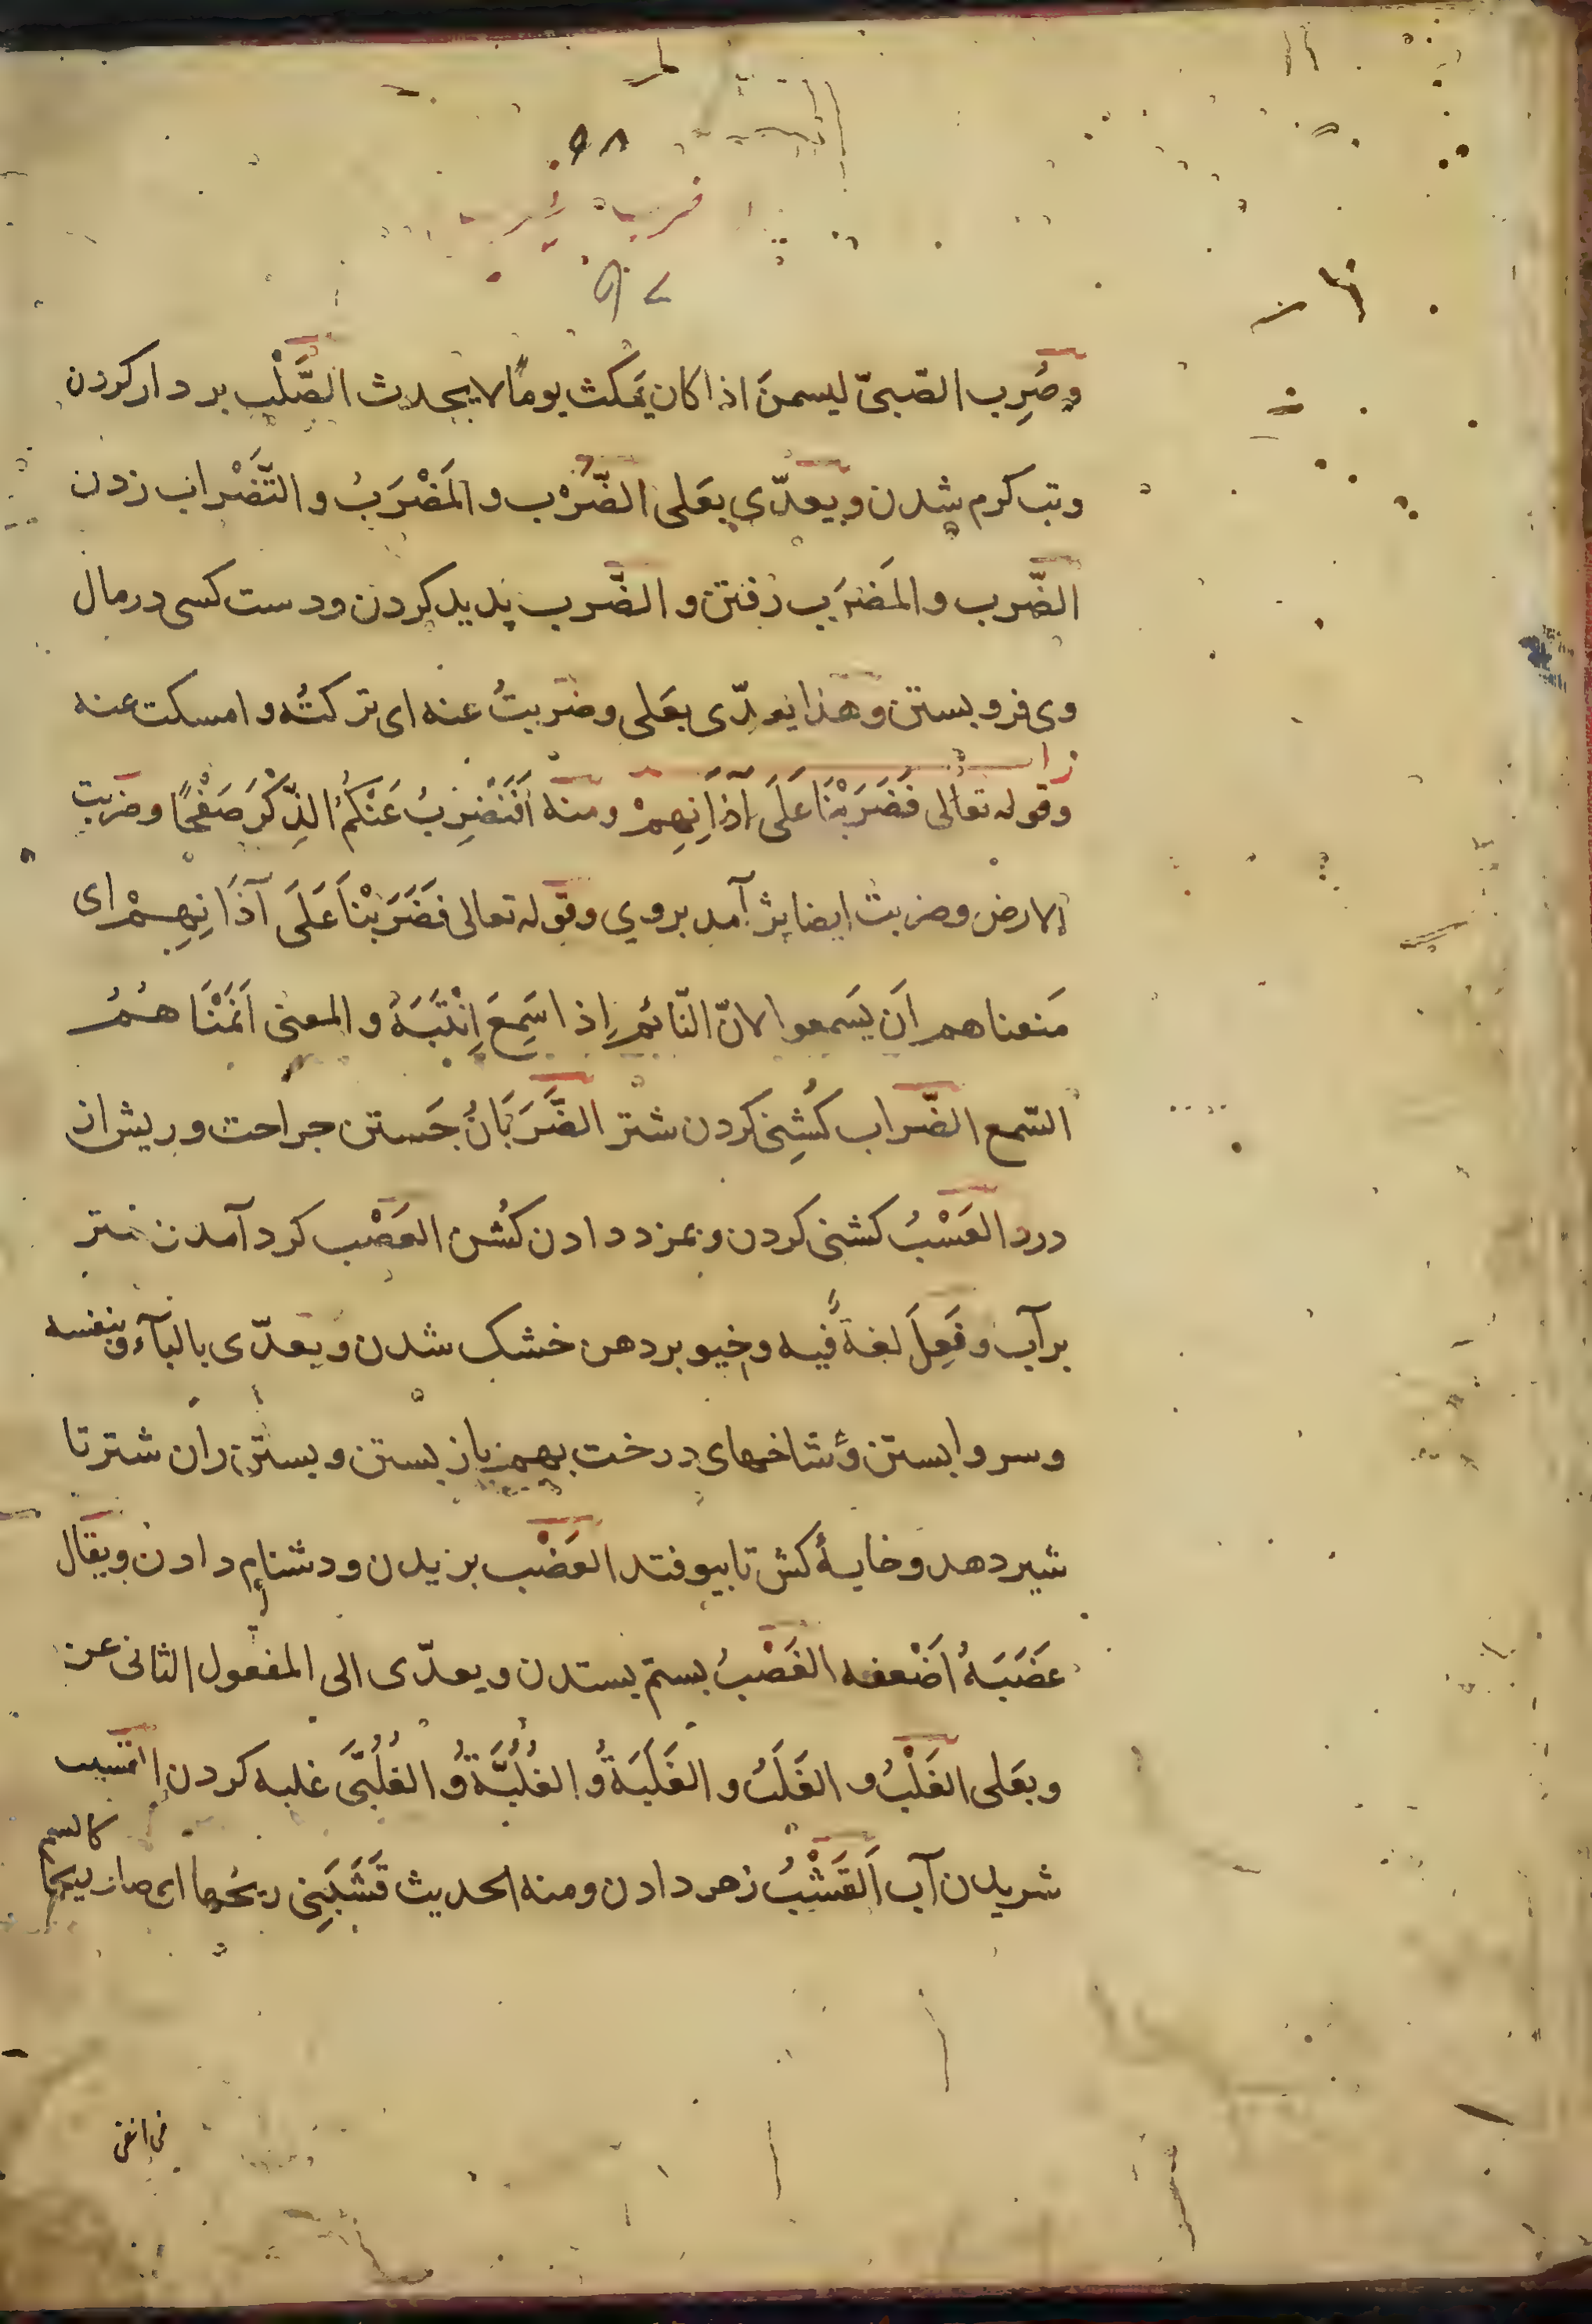 وضُرِب الصّبىّ ليسمنَ اذا كان يَمكث يومًا لا يحدث الصَّلْب بر دار كردن
وتب كرم شدن ويعدّى بعَلى الضَّرْب و المَضْرَبُ و التَّضْراب زدن
الضّرب و المَضرَب رفتن و الضَّرب پديد كردن ودست كسى در مال
وى فرو بستن وهذا يعدّى بعَلى وضربتُ عنه اى تركتُه و امسكت عنه
وقوله تعالى فَضَرَبْنَا عَلَى آذَانِهِمْ ومنه اَفَنَضْرِبُ عَنْكُمُ الذِّكْرَ صَفْحًا وضربت
الارض وضربت ايضا بژ آمد بروي وقوله تعالى فَضَرَبْنَا عَلَى آذَانِهِمْ اى
مَنعناهم اَن يَسمعوا لانّ النّائم اِذا سَمِعَ اِنْتَبَهَ و المعنى اَنَمْنَاهُمُ
السّمع الضّراب كُشِنى كردن شتر الضَّرَبَانُ جَستن جراحت وريش از
درد العَسْبُ كشنى كردن وبمزد دادن كُشن العَصْب كرد آمدن شتر
بر آب و فَعِلَ لغةٌ فيه وخيو بر دهن خشك شدن ويعدّى بالبآء وبنفسه
وسر وا بستن وشاخهاى درخت بهم باز بستن و بستن ران شتر تا
شير دهد وخايهٔ كش تا بيوفتد العَضْب بريدن و دشنام دادن ويقال
عَضَبَهُ اَضْعفه الغَصْبُ بستم بستدن ويعدّى الى المفعول الثانى عن
وبعَلى الغَلْبُ و الغَلَبُ و الغَلَبَةُ و الغُلُبَّةُ و الغُلُبَّى غلبه كردن القسيب
شريدن آب اَلقَشْبُ زهر دادن ومنه الحديث قَشَبَنِى ريحُها اى صار ريحها
كالسم
فى انفى